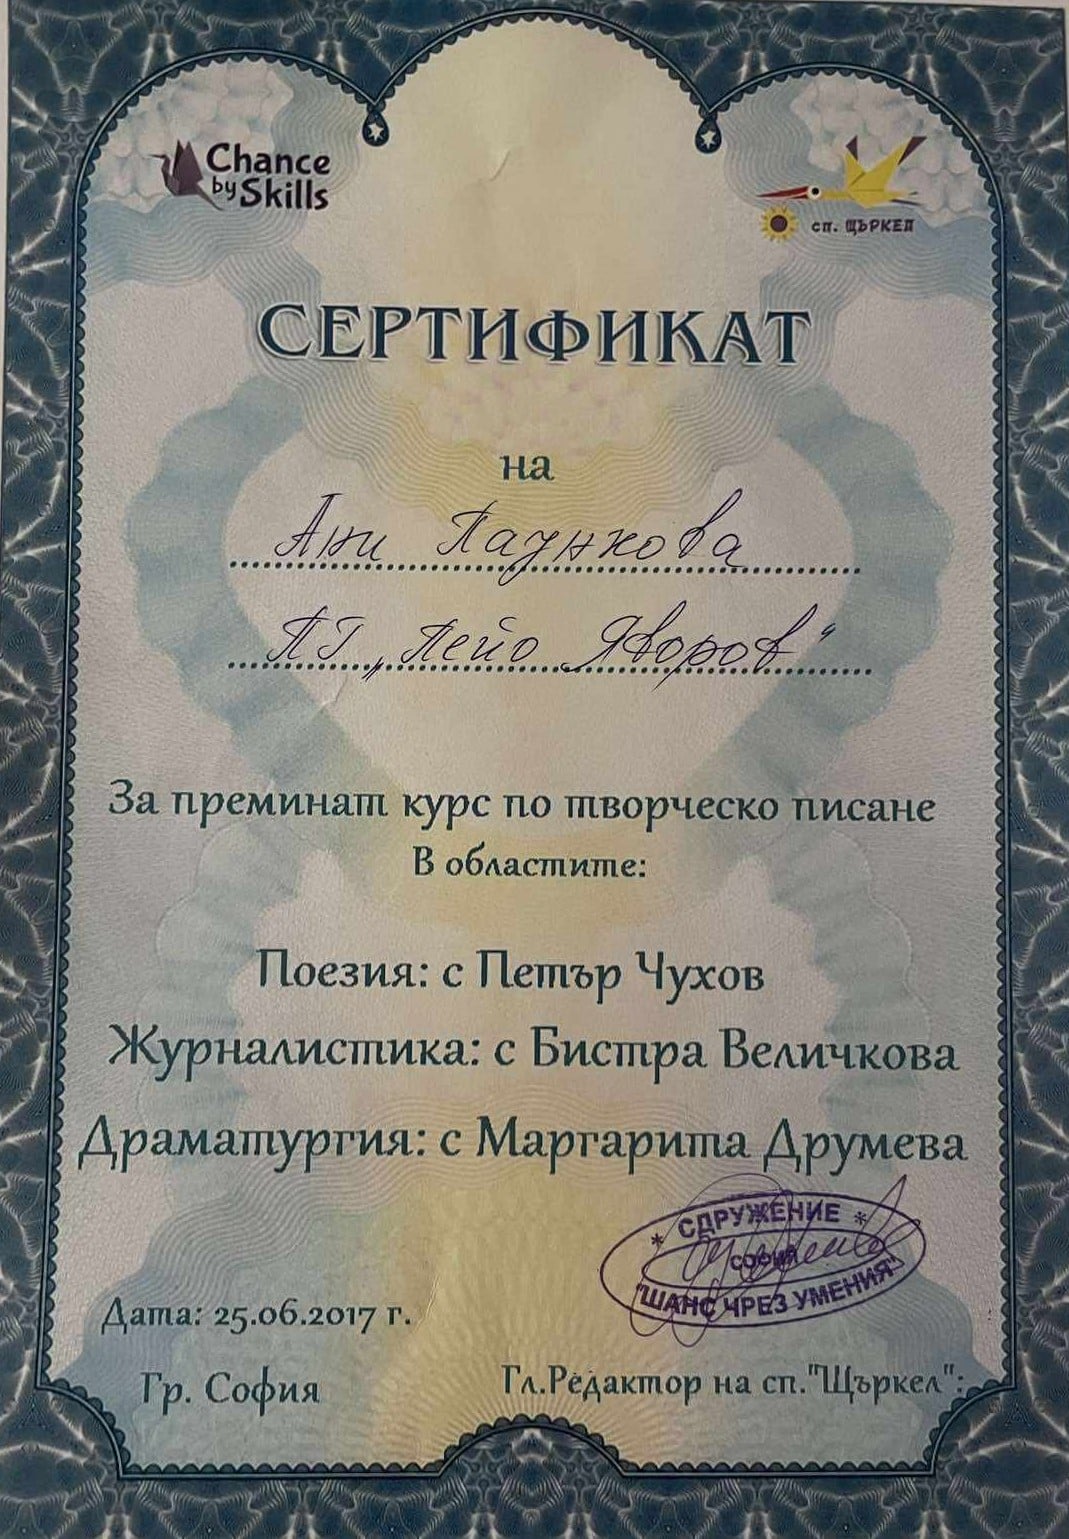 Chance
by Skills
сп. ЩЪРКЕЛ
СЕРТИФИКАТ
на
Ани Паункова
ПГ „Пейо Яворов“
За преминат курс по творческо писане
В областите:
Поезия: с Петър Чухов
Журналистика: с Бистра Величкова
Драматургия: с Маргарита Друмева
* СДРУЖЕНИЕ *
СОФИЯ
"ШАНС ЧРЕЗ УМЕНИЯ"
Дата: 25.06.2017 г.
Гр. София
Гл.Редактор на сп."Щъркел":